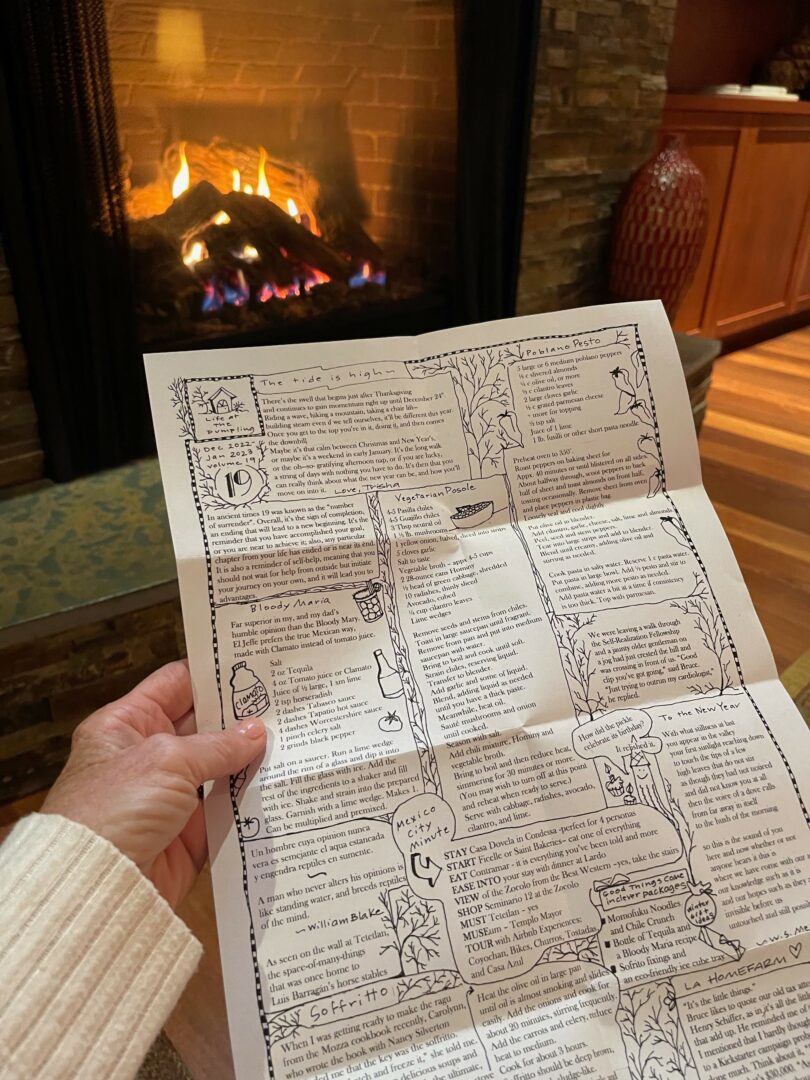 The tide is high~
Life at
the
Dumpling
Dec 2022-
Jan 2023
volume 19
19
There's the swell that begins just after Thanksgiving
and continues to gain momentum right up until December 24th.
Riding a wave, hiking a mountain, taking a chair lift~
building steam even if we tell ourselves, it'll be different this year.
Once you get to the top you're in it, doing it, and then comes
the downhill.
Maybe it's that calm between Christmas and New Year's,
or maybe it's a weekend in early January. It's the long walk
or the oh~so~ gratifying afternoon nap, or if you are lucky,
a string of days with nothing you have to do. It's then that you
can really think about what the new year can be, and how you'll
move on into it. Love, Trisha
In ancient times 19 was known as the "number
of surrender". Overall, it's the sign of completion,
an ending that will lead to a new beginning. It's the
reminder that you have accomplished your goal,
or you are near to achieve it; also, any particular
chapter from your life has ended or is near its end.
It is also a reminder of self-help, meaning that you
should not wait for help from outside but initiate
your journey on your own, and it will lead you to
advantages.
Bloody Maria
Far superior in my, and my dad's
humble opinion than the Bloody Mary.
El Jeffe prefers the true Mexican way,
made with Clamato instead of tomato juice.
Salt
2 oz Tequila
4 oz Tomato juice or Clamato
Juice of ½ large, 1 sm lime
2 tsp horseradish
2 dashes Tabasco sauce
2 dashes Tapatio hot sauce
4 dashes Worcestershire sauce
1 pinch celery salt
2 grinds black pepper
Clamato
Put salt on a saucer. Run a lime wedge
around the rim of a glass and dip it into
the salt. Fill the glass with ice. Add the
rest of the ingredients to a shaker and fill
with ice. Shake and strain into the prepared
glass. Garnish with a lime wedge. Makes 1.
Can be multiplied and premixed.
Un hombre cuya opinion nunca
vera es semejante el aqua estancada
y engendra reptiles en sumente.
A man who never alters his opinion is
like standing water, and breeds reptiles
of the mind.
~William Blake
As seen on the wall at Tetetlan,
the space-of-many-things
that was once home to
Luis Barragán's horse stables
Soffritto
When I was getting ready to make the ragu
from the Mozza cookbook recently, Carolynn,
who wrote the book with Nancy Silverton
me that the key was the soffritto.
and freeze it," she told me.
delicious soups and
ultimate,
Vegetarian Posole
4-5 Pasilla chiles
4-5 Guajillo chiles
3 Tbsp neutral oil
1 ½ lb. mushrooms
1 yellow onion, halved, sliced into strips
5 cloves garlic
Salt to taste
Vegetable broth - appx 4-5 cups
2 28-ounce cans Hominy
½ head of green cabbage, shredded
10 radishes, thinly sliced
Avocado, cubed
¼ cup cilantro leaves
Lime wedges
Remove seeds and stems from chiles.
Toast in large saucepan until fragrant.
Remove from pan and put into medium
saucepan with water.
Bring to boil and cook until soft
Strain chiles, reserving liquid.
Transfer to blender.
Add garlic and some of liquid.
Blend, adding liquid as needed
until you have a thick paste.
Meanwhile, heat oil.
Sauté mushrooms and onion
until cooked.
Season with salt.
Add chili mixture, Hominy and
vegetable broth.
Bring to boil and then reduce heat,
simmering for 30 minutes or more.
(You may wish to turn off at this point
and reheat when ready to serve.)
Serve with cabbage, radishes, avocado,
cilantro, and lime.
Mexico
City
Minute
STAY Casa Dovela in Condessa -perfect for 4 personas
START Ficelle or Saint Bakeries- eat one of everything
EAT Contramar - it is everything you've been told and more
EASE INTO your stay with dinner at Lardo
VIEW of the Zocolo from the Best Western ~yes, take the stairs
SHOP Seminario 12 at the Zocolo
MUST Tetetlan - yes
MUSEum - Templo Mayor
TOUR with Airbnb Experiences:
Coyochan, Bikes, Churros, Tostadas
and Casa Azul
Heat the olive oil in large pan
until oil is almost smoking and slides
easily. Add the onions and cook for
about 20 minutes, stirring frequently.
Add the carrots and celery, reduce
heat to medium.
Cook for about 3 hours.
soffritto should be deep brown,
Poblano Pesto
5 large or 6 medium poblano peppers
½ c slivered almonds
¼ c olive oil, or more
½ c cilantro leaves
2 large cloves garlic
½ c grated parmesan cheese
+ more for topping
½ tsp salt
Juice of 1 lime
1 lb. fusilli or other short pasta noodle
Preheat oven to 350°
Roast peppers on baking sheet for
Appx. 40 minutes or until blistered on all sides.
About halfway through, scoot peppers to back
half of sheet and toast almonds on front half,
tossing occasionally. Remove sheet from oven
and place peppers in plastic bag.
Loosely seal and cool slightly.
Put olive oil in blender.
Add cilantro, garlic, cheese, salt, lime and almonds
Peel, seed and stem peppers.
Tear into large strips and add to blender
Blend until creamy, adding olive oil and
stirring as needed.
Cook pasta in salty water. Reserve 1 c pasta water.
Put pasta in large bowl. Add ½ pesto and stir to
combine, adding more pesto as needed.
Add pasta water a bit at a time if consistency
is too thick. Top with parmesan.
We were leaving a walk through
the Self-Realization Fellowship
and a jaunty older gentleman on
a jog had just crested the hill and
was crossing in front of us. "Good
clip you've got going," said Bruce.
"Just trying to outrun my cardiologist,"
he replied.
How did the pickle
celebrate its birthday?
It relished it.
To the New Year
With what stillness at last
you appear in the valley
your first sunlight reaching down
to touch the tips of a few
high leaves that do not stir
as though they had not noticed
and did not know you at all
then the voice of a dove calls
from far away in itself
to the hush of the morning
so this is the sound of you
here and now whether or not
anyone hears it this is
where we have come with our
our knowledge such as it is
and our hopes such as they
invisible before us
untouched and still possible
~W.S. Me
Good Things Come
in clever packages
Winter
gift
ideas
Momofuku Noodles
and Chile Crunch
Bottle of Tequila and
a Bloody Maria recipe
Sofrito fixings and
an eco-friendly ice cube tray
LA HOMEFARM
"It's the little things."
Bruce likes to quote our old tax
Henry Schiffer, as in it's all the
that add up. He reminded me of
I mentioned that I hardly
to a Kickstarter campaign
much. Think about
$30,000